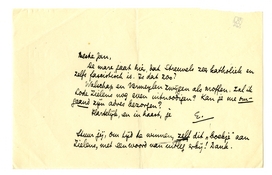 Beste Jan,
De mare gaat hier, dat Streuvels zeer katholiek en
zelfs fascistisch is. Is dat zoo?
Walschap en Vermeylen zwijgen als moffen. Zal ik
Lode Zielens nog even uitnoodigen? Kan je me om-
gaand zijn adres bezorgen?
Hartelijk, en in haast, je
E.
Steun jij, om tijd te winnen, zelf dit "boekje" aan
Zielens, met een woord van uitleg erbij! Dank.